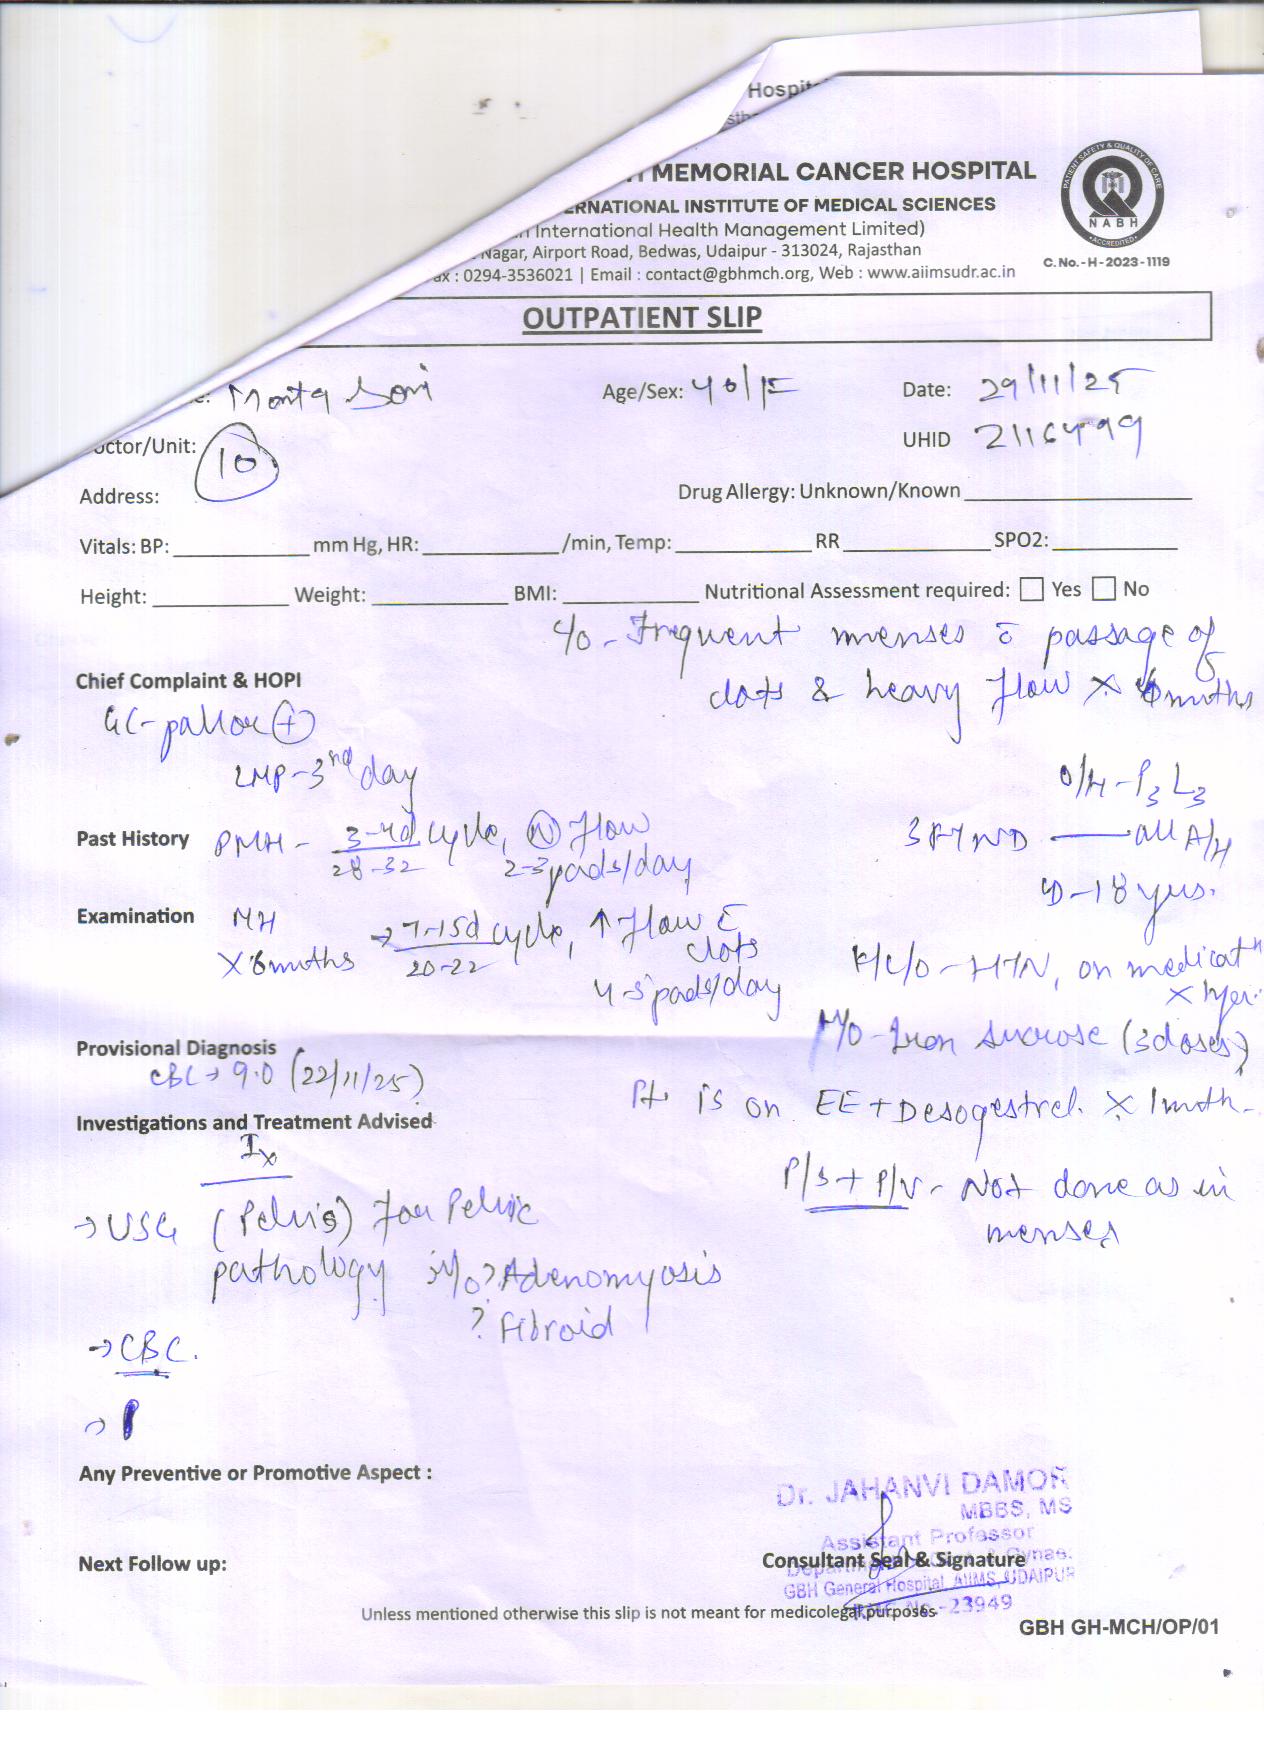 Hospit
MEMORIAL CANCER HOSPITAL
ERNATIONAL INSTITUTE OF MEDICAL SCIENCES
International Health Management Limited)
Nagar, Airport Road, Bedwas, Udaipur - 313024, Rajasthan
ax : 0294-3536021 | Email : contact@gbhmch.org, Web : www.aiimsudr.ac.in
PATIENT SAFETY & QUALITY OF CARE
NABH
ACCREDITED
C.No.-H-2023-1119
OUTPATIENT SLIP
Soni Age/Sex: 40/F Date: 29/11/25
octor/Unit: 10 UHID
Address: Drug Allergy: Unknown/Known
Vitals: BP: mm Hg, HR: /min, Temp: RR SPO2:
Height: Weight: BMI: Nutritional Assessment required: Yes No
c/o - Frequent menses c̄ passage of
clots & heavy flow x 6 months
Chief Complaint & HOPI
GC - pallor +
LMP - 3rd day
O/H - P3 L3
Past History PMH - 3-4d/28-32 cycle, N flow
2-3 pads/day
3 FTND — all A/H
LD - 18 yrs.
Examination MH x 6 months → 7-15d/20-22 cycle, ↑ flow c̄ clots
4-5 pads/day
K/C/O - HTN, on medicatn
x 1 yer.
H/O - Iron sucrose (3 doses)
Provisional Diagnosis
CBC → 9.0 (22/11/25)
Pt. is on EE + Desogestrel x 1 mnth.
Investigations and Treatment Advised
Ix
P/S + P/V - Not done as in
menses
→ USG (Pelvis) for Pelvic
pathology i/v/o ? Adenomyosis
? Fibroid
→ CBC.
→
Any Preventive or Promotive Aspect :
Dr. JAHANVI DAMOR
MBBS, MS
Assistant Professor
Next Follow up: Consultant Seal & Signature
GBH General Hospital, AIIMS, UDAIPUR
-23949
Unless mentioned otherwise this slip is not meant for medicolegal purposes.
GBH GH-MCH/OP/01